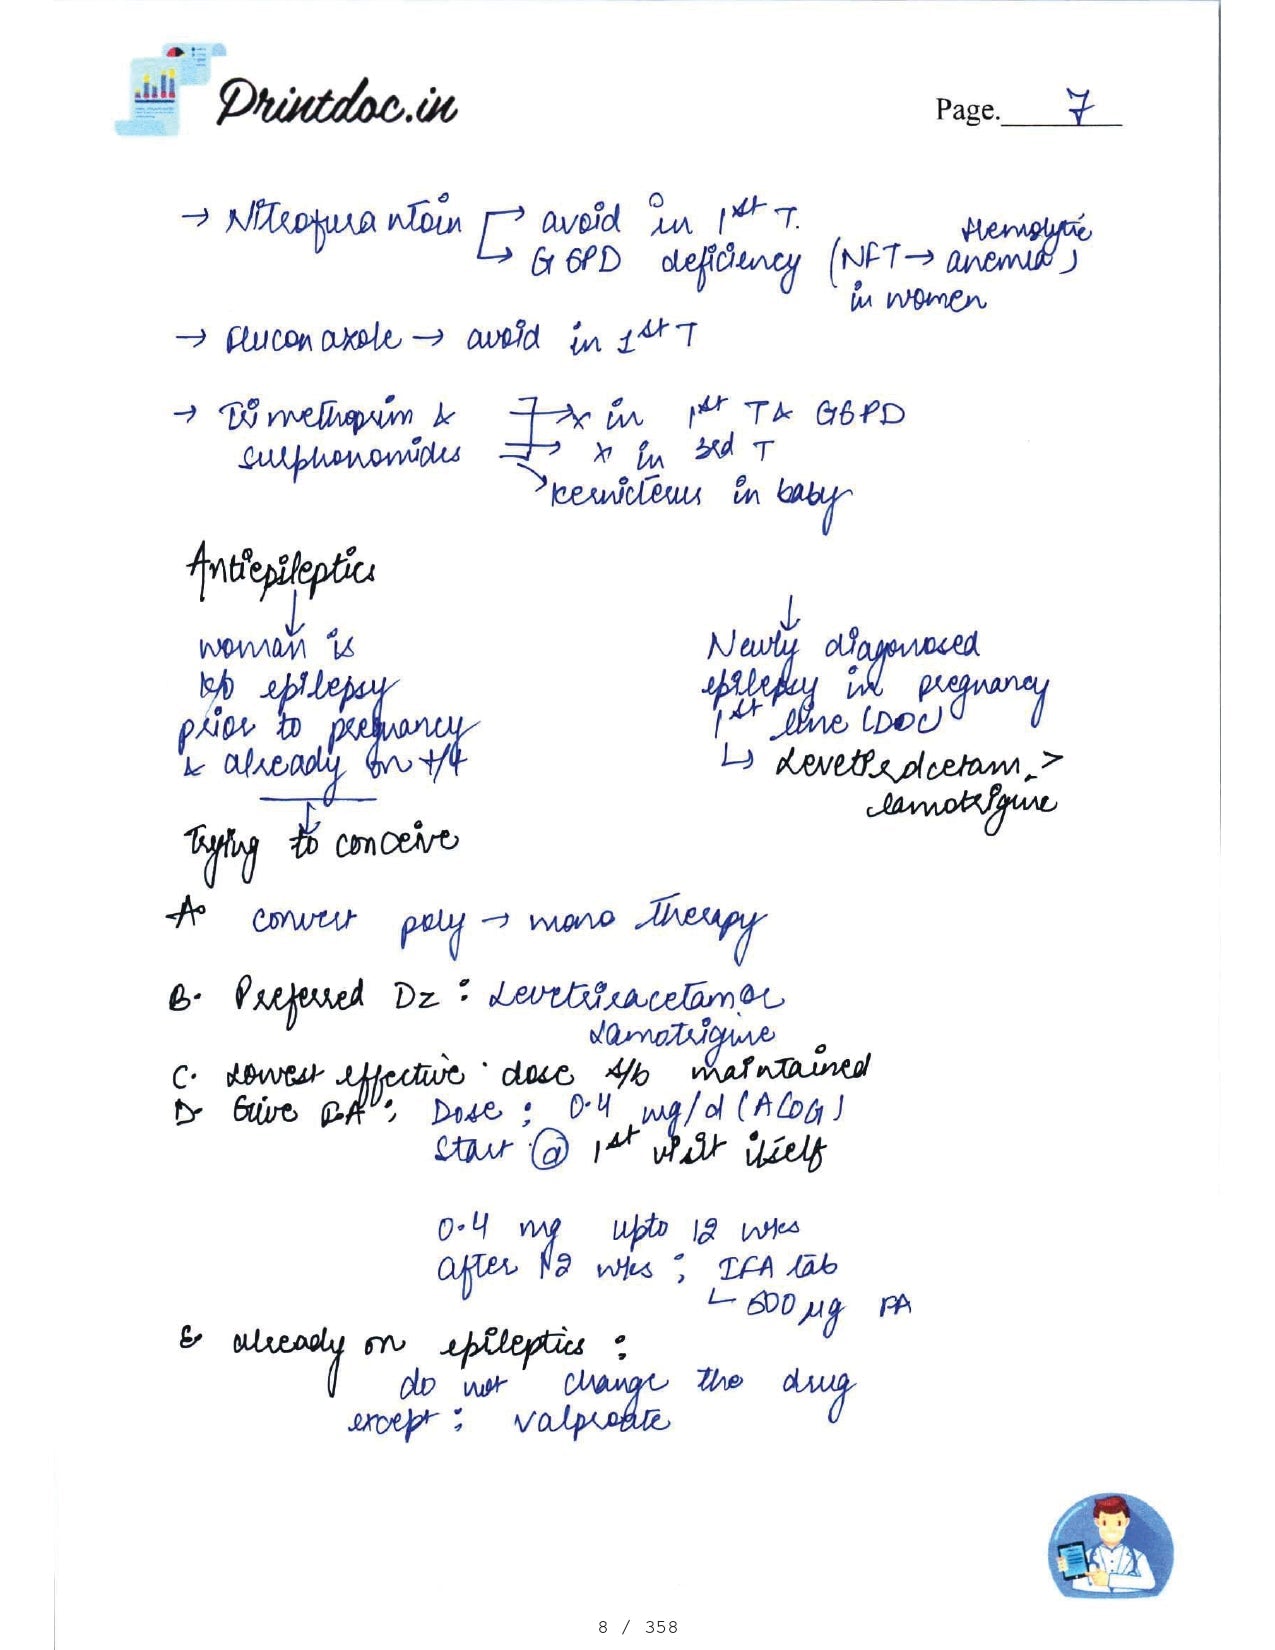 Printdoc.in
Page. 7
→ Nitrofurantoin → avoid in 1st T.
→ G6PD deficiency (NFT → Hemolytic anemia)
in women
→ Fluconazole → avoid in 1st T
→ Trimethoprim & → x in 1st T & G6PD
sulphonomides → x in 3rd T
→ kernicterus in baby
Antiepileptics
↓
woman is
k/o epilepsy
prior to pregnancy
& already on t/t
↓
Trying to conceive
↓
Newly diagonosed
epilepsy in pregnancy
1st line (DOC)
↳ Levetiradcetam >
lamotrigine
A. convert poly → mono therapy
B. Preferred Dz : Levetriracetam or
Lamotrigine
C. Lowest effective dose s/b maintained
D. Give FA : Dose : 0.4 mg/d (ACOG)
Start @ 1st visit itself
0.4 mg upto 12 wks
after 12 wks ; IFA tab
↳ 500 µg FA
E. already on epileptics :
do not change the drug
except : valproate
8 / 358